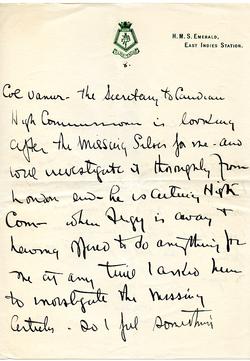 H.M.S. EMERALD,
EAST INDIES STATION.
Col Vanier - the Secretary to Canadian
High Commissioner is looking
after the Missing Silver for me - and
will investigate it thoroughly from
London end - he is acting High
Com - when Fergy is away &
having offered to do anything for
me at any time I asked him
to investigate the Missing
Articles - so I feel something